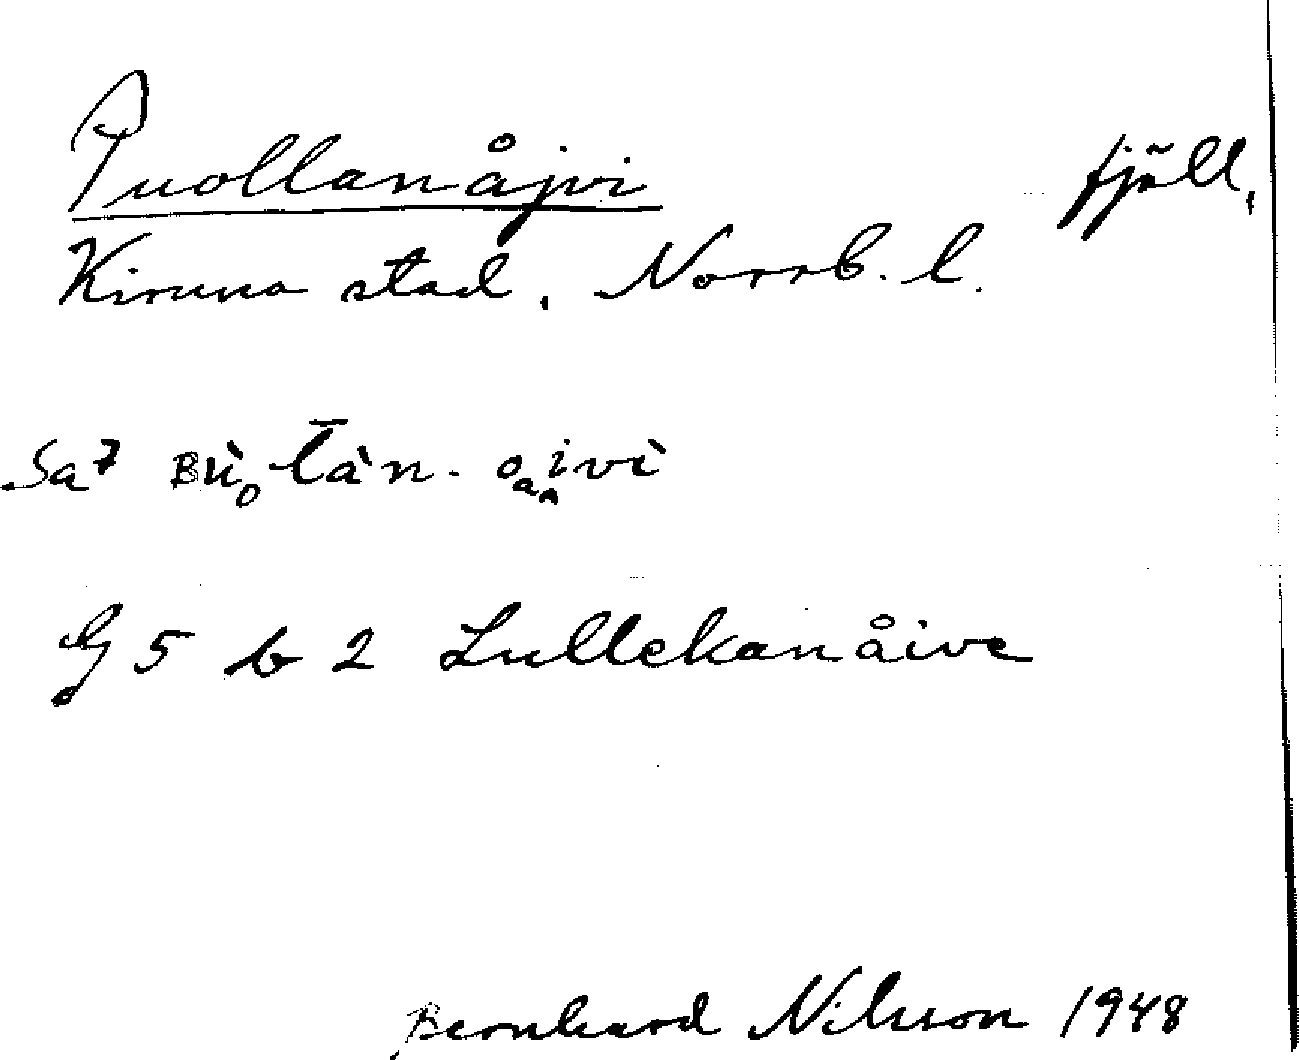 Puollanåjvi fjäll,
Kiruna stad, Norrb. l.
Sa7
G 5 b 2 Lullekanåive
Bernhard Nilsson 1948